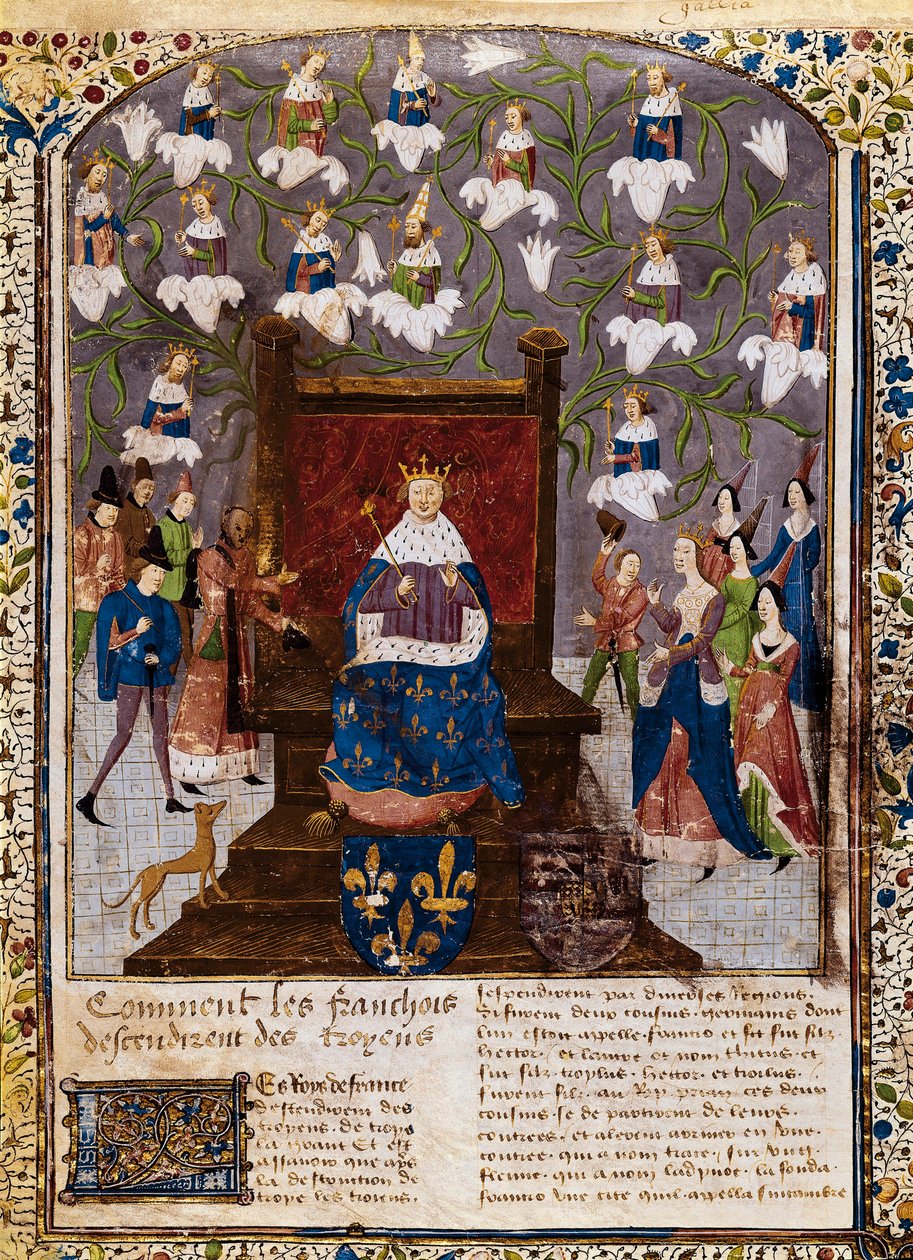 gallia
Comment les franchois
descendirent des troyens
Les Roys de france
descendirent des
troyens. de troye
la grant Et est
assauoir que aps
la destruction de
troye les troiens.
sespendirent par diuerses Regions.
Il furent deux cousins. germains dont
lun estoit appelle francio et fu filz
hector. et lautre et nom et
fut filz troylus. hector. et troilus.
furent filz. au Roy prian. ces deux
cousins. se de partirent de leurs.
contrees. et alerent en vne.
contree. qui a nom trace. Sur vng
fleuue. qui a nom la
francio vne cite quil appella